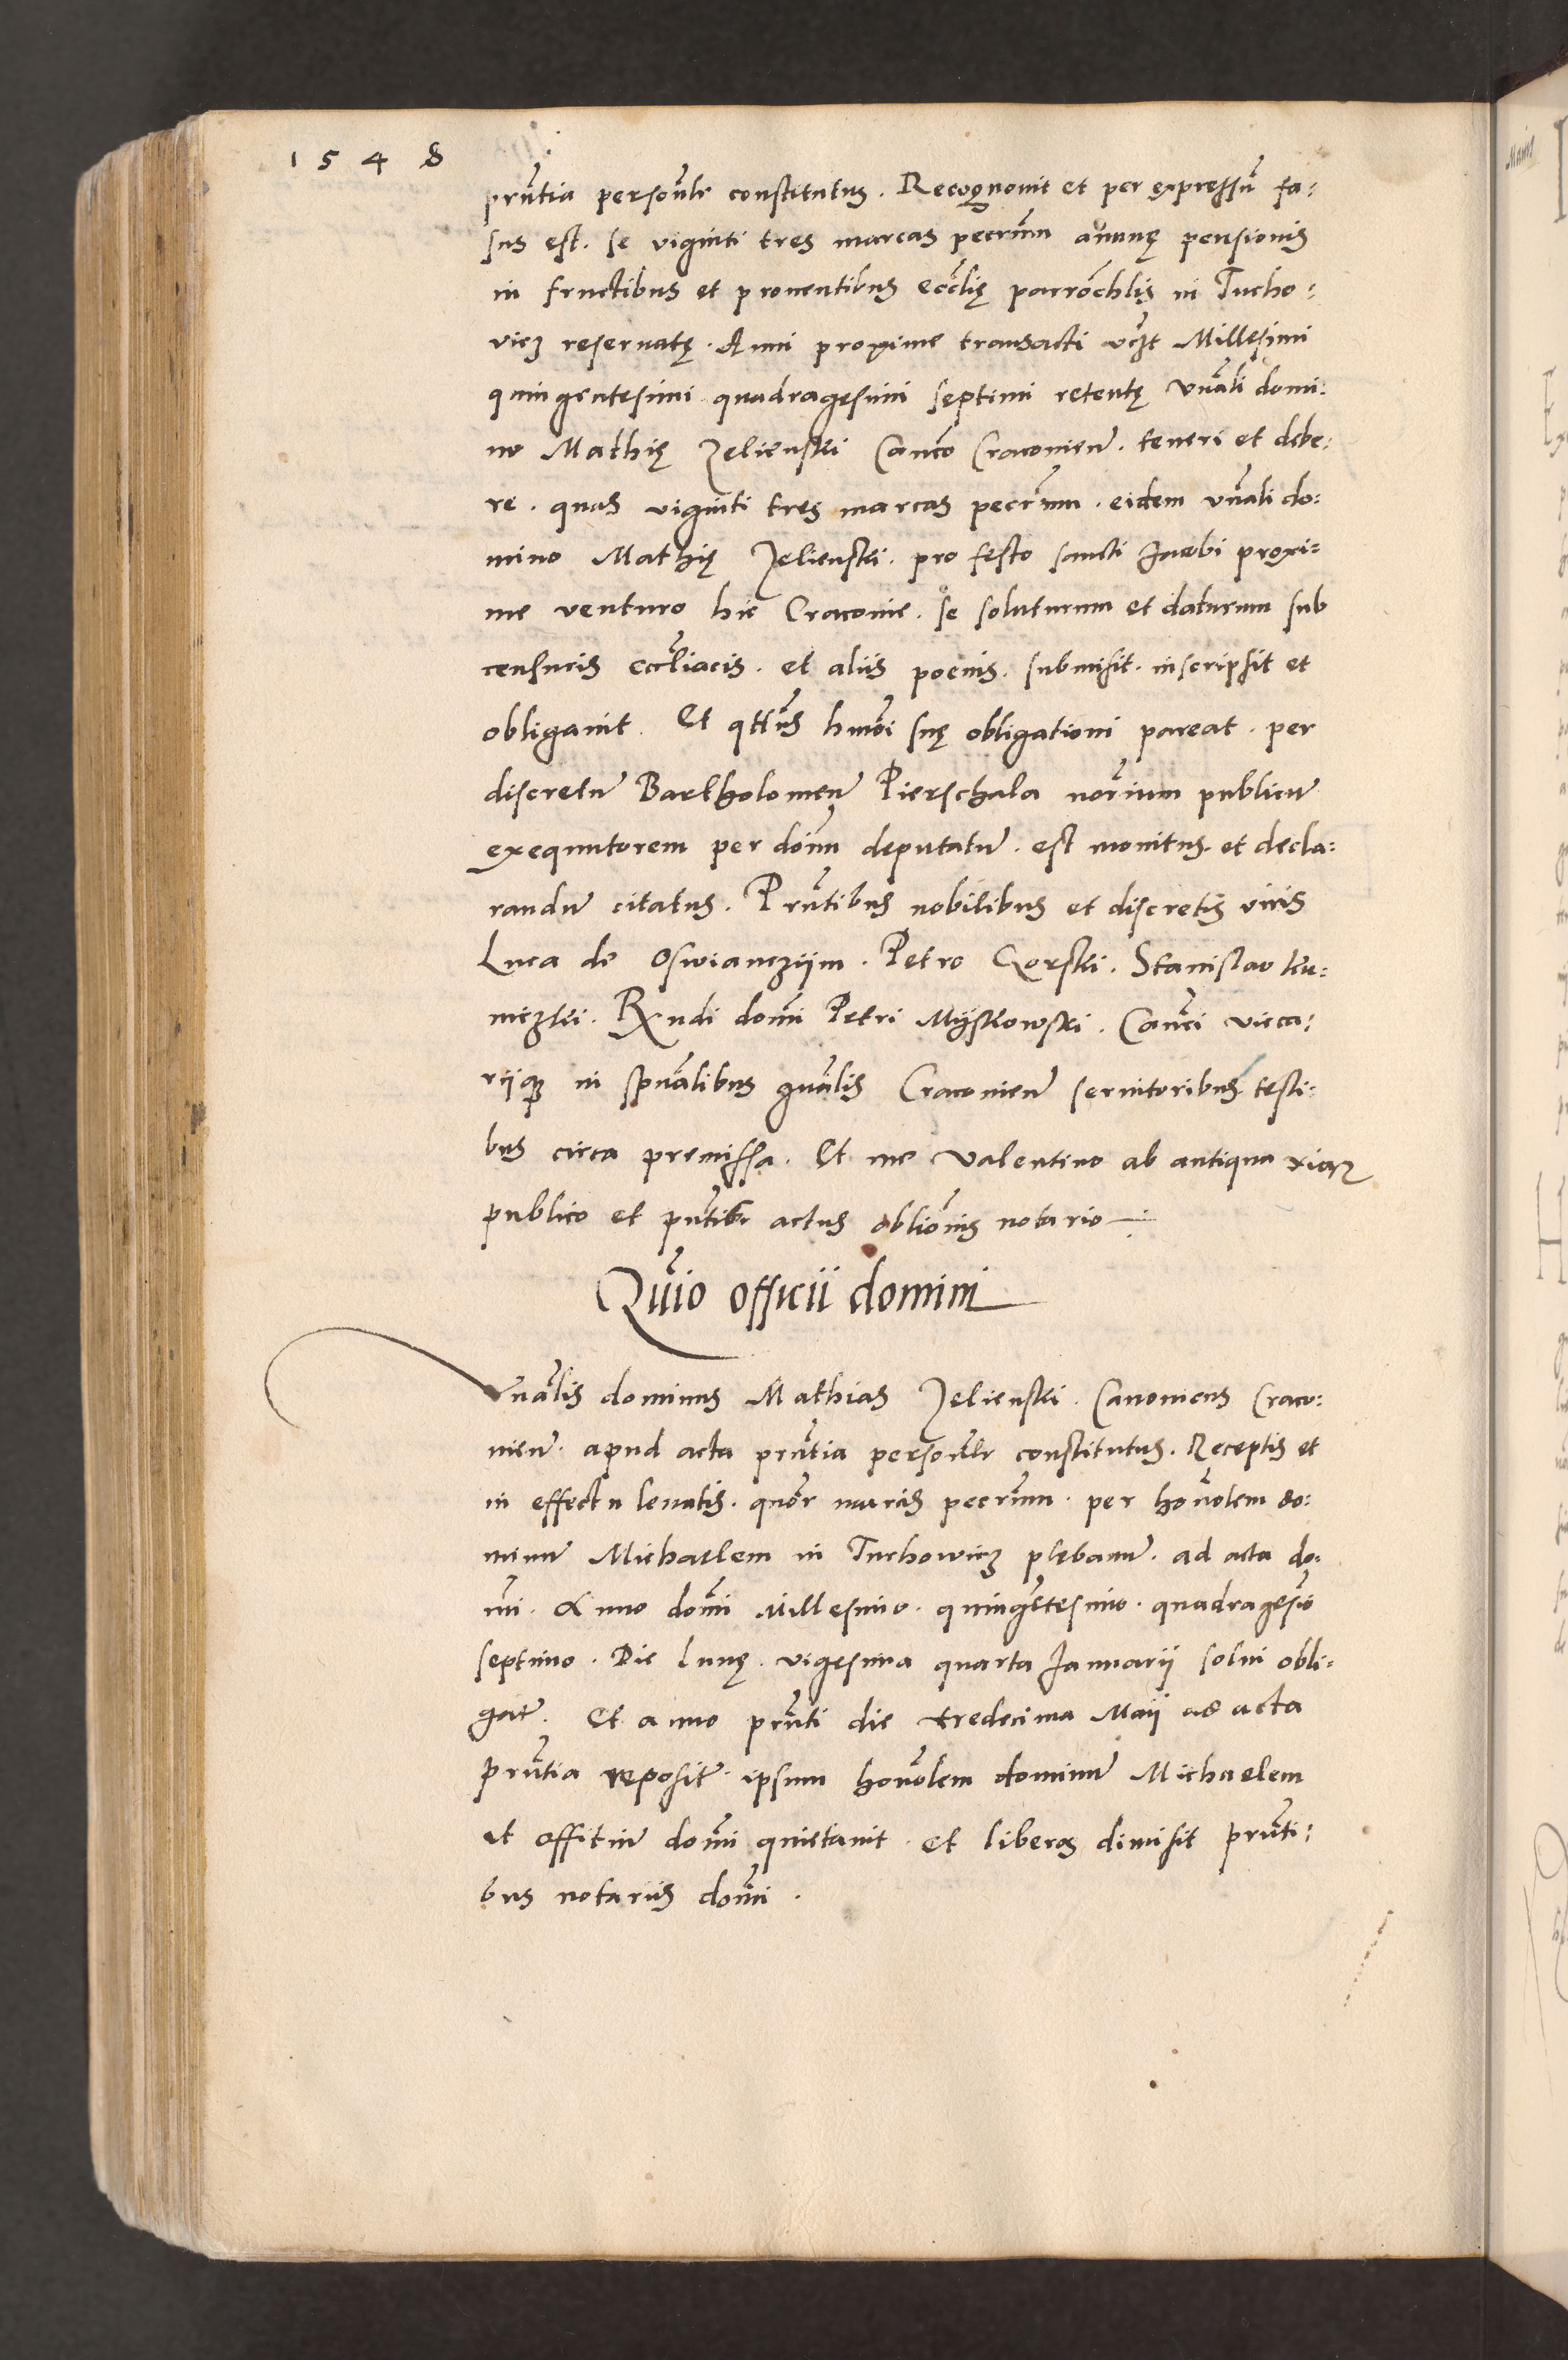 1548
prñtia personlr constitutus. Recognouit et per expressũ fa:
sus est. se viginti tres marcas pecrum annuę pensionis
in fructibus et prouentibus ecclię parrochlis in Tucho:
vicz reseruatę. Anni proxime transacti vcȝt Millesimi
quingentesimi quadragesimi septimi retentę Vnãli domi:
no Mathię Jelienski Canco Cracovien̄. teneri et debe:
re. quas viginti tres marcas pecrum. eidem vnãli do:
mino Mathię Jelienski. pro festo sancti Jacobi proxi:
me venturo hic Cracovie. se soluturum et daturum sub
censuris eccliacis. et aliis poenis. submisit. inscripsit et
obligauit. Et qtns hmõi suę obligationi pareat. per
discretũ Bartholomeũ Pierschala norium publicũ
exequutorem per domn deputatũ. est monitus. et decla:
randũ citatus. Prñtibus nobilibus et discretis viris
Luca de Oswianczijm. Petro Gorski. Stanislao
Rndi domi Petri Myskowski. Canci vica:
rijqȝ in spũalibus gnãlis Cracovien̄ seruitoribus testi:
bus circa premissa. Et me Valentino ab antiqua
publico et pñtibr actus oblionis notario
Qũio officii domini
Vnãlis dominus Mathias Jelienski. Canonicus Craco:
vien̄. apud acta prñtia personlr constitutus. Receptis et
in effectu leuatis. quor marcis pecrum. per honolem do:
minũ Michaelem in Tuchowicz plębanũ. ad acta do:
mi. Anno domi Millesimo. quingẽtesimo. quadragesio
septimo. Die Lunę. vigesima quarta Januarij solui obli:
gatr. Et anno prñti die tredecima Maij ad acta
prñtia repositr. ipsum honolem dominũ Michaelem
et offitiũ domi quietauit. et liberos dimisit prñti:
bus notariis domi.